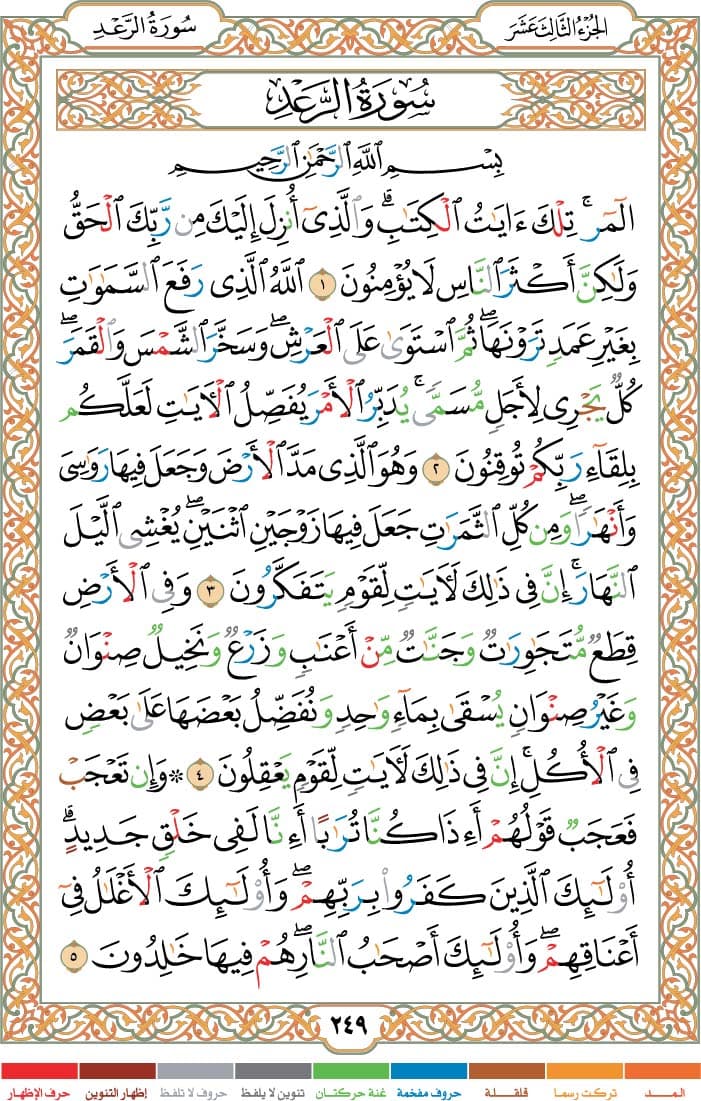 الجزء الثالث عشر
سورة الرعد
سُورَةُ الرَّعْدِ
بِسْمِ ٱللَّهِ ٱلرَّحْمَٰنِ ٱلرَّحِيمِ
الٓمٓر ۚ تِلْكَ ءَايَٰتُ ٱلْكِتَٰبِ ۗ وَٱلَّذِىٓ أُنزِلَ إِلَيْكَ مِن رَّبِّكَ ٱلْحَقُّ
وَلَٰكِنَّ أَكْثَرَ ٱلنَّاسِ لَا يُؤْمِنُونَ ١ ٱللَّهُ ٱلَّذِى رَفَعَ ٱلسَّمَٰوَٰتِ
بِغَيْرِ عَمَدٍ تَرَوْنَهَا ۖ ثُمَّ ٱسْتَوَىٰ عَلَى ٱلْعَرْشِ ۖ وَسَخَّرَ ٱلشَّمْسَ وَٱلْقَمَرَ ۖ
كُلٌّ يَجْرِى لِأَجَلٍ مُّسَمًّى ۚ يُدَبِّرُ ٱلْأَمْرَ يُفَصِّلُ ٱلْءَايَٰتِ لَعَلَّكُم
بِلِقَآءِ رَبِّكُمْ تُوقِنُونَ ٢ وَهُوَ ٱلَّذِى مَدَّ ٱلْأَرْضَ وَجَعَلَ فِيهَا رَوَٰسِىَ
وَأَنْهَٰرًا ۖ وَمِن كُلِّ ٱلثَّمَرَٰتِ جَعَلَ فِيهَا زَوْجَيْنِ ٱثْنَيْنِ ۖ يُغْشِى ٱلَّيْلَ
ٱلنَّهَارَ ۚ إِنَّ فِى ذَٰلِكَ لَءَايَٰتٍ لِّقَوْمٍ يَتَفَكَّرُونَ ٣ وَفِى ٱلْأَرْضِ
قِطَعٌ مُّتَجَٰوِرَٰتٌ وَجَنَّٰتٌ مِّنْ أَعْنَٰبٍ وَزَرْعٌ وَنَخِيلٌ صِنْوَانٌ
وَغَيْرُ صِنْوَانٍ يُسْقَىٰ بِمَآءٍ وَٰحِدٍ وَنُفَضِّلُ بَعْضَهَا عَلَىٰ بَعْضٍ
فِى ٱلْأُكُلِ ۚ إِنَّ فِى ذَٰلِكَ لَءَايَٰتٍ لِّقَوْمٍ يَعْقِلُونَ ٤ * وَإِن تَعْجَبْ
فَعَجَبٌ قَوْلُهُمْ أَءِذَا كُنَّا تُرَٰبًا أَءِنَّا لَفِى خَلْقٍ جَدِيدٍ ۗ
أُو۟لَٰٓئِكَ ٱلَّذِينَ كَفَرُوا۟ بِرَبِّهِمْ ۖ وَأُو۟لَٰٓئِكَ ٱلْأَغْلَٰلُ فِىٓ
أَعْنَاقِهِمْ ۖ وَأُو۟لَٰٓئِكَ أَصْحَٰبُ ٱلنَّارِ ۖ هُمْ فِيهَا خَٰلِدُونَ ٥
٢٤٩
المــد تركت رسما قلقلة حروف مفخمة غنة حركتان تنوين لا يلفظ حروف لا تلفظ إظهار التنوين حرف الإظهار